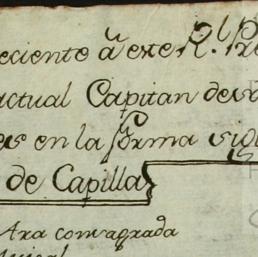 eciente â este Rl. Pre
actual Capitan de
es en la forma sig
de Capilla
Ara consagrada